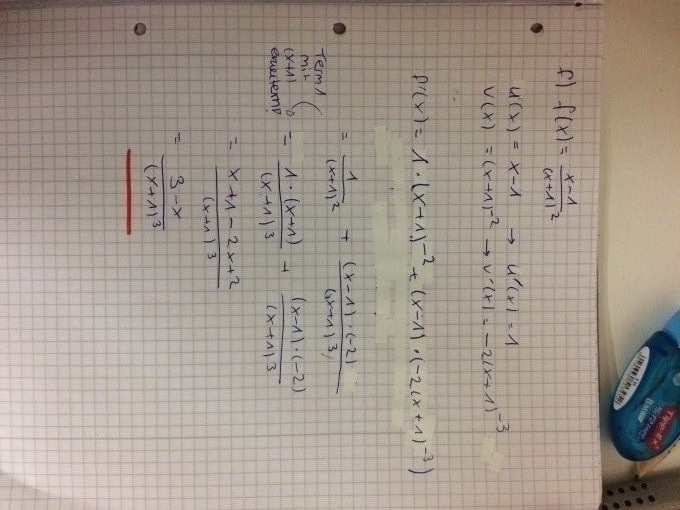 f) f(x) = x-1 / (x+1)²
u(x) = x-1 → u'(x) = 1
v(x) = (x+1)⁻² → v'(x) = -2(x+1)⁻³
f'(x) = 1·(x+1)⁻² + (x-1)·(-2(x+1)⁻³)
= 1 / (x+1)² + (x-1)·(-2) / (x+1)³
Term 1
mit
(x+1)
= 1·(x+1) / (x+1)³ + (x-1)·(-2) / (x+1)³
= x+1-2x+2 / (x+1)³
= 3-x / (x+1)³
Tipp-Ex